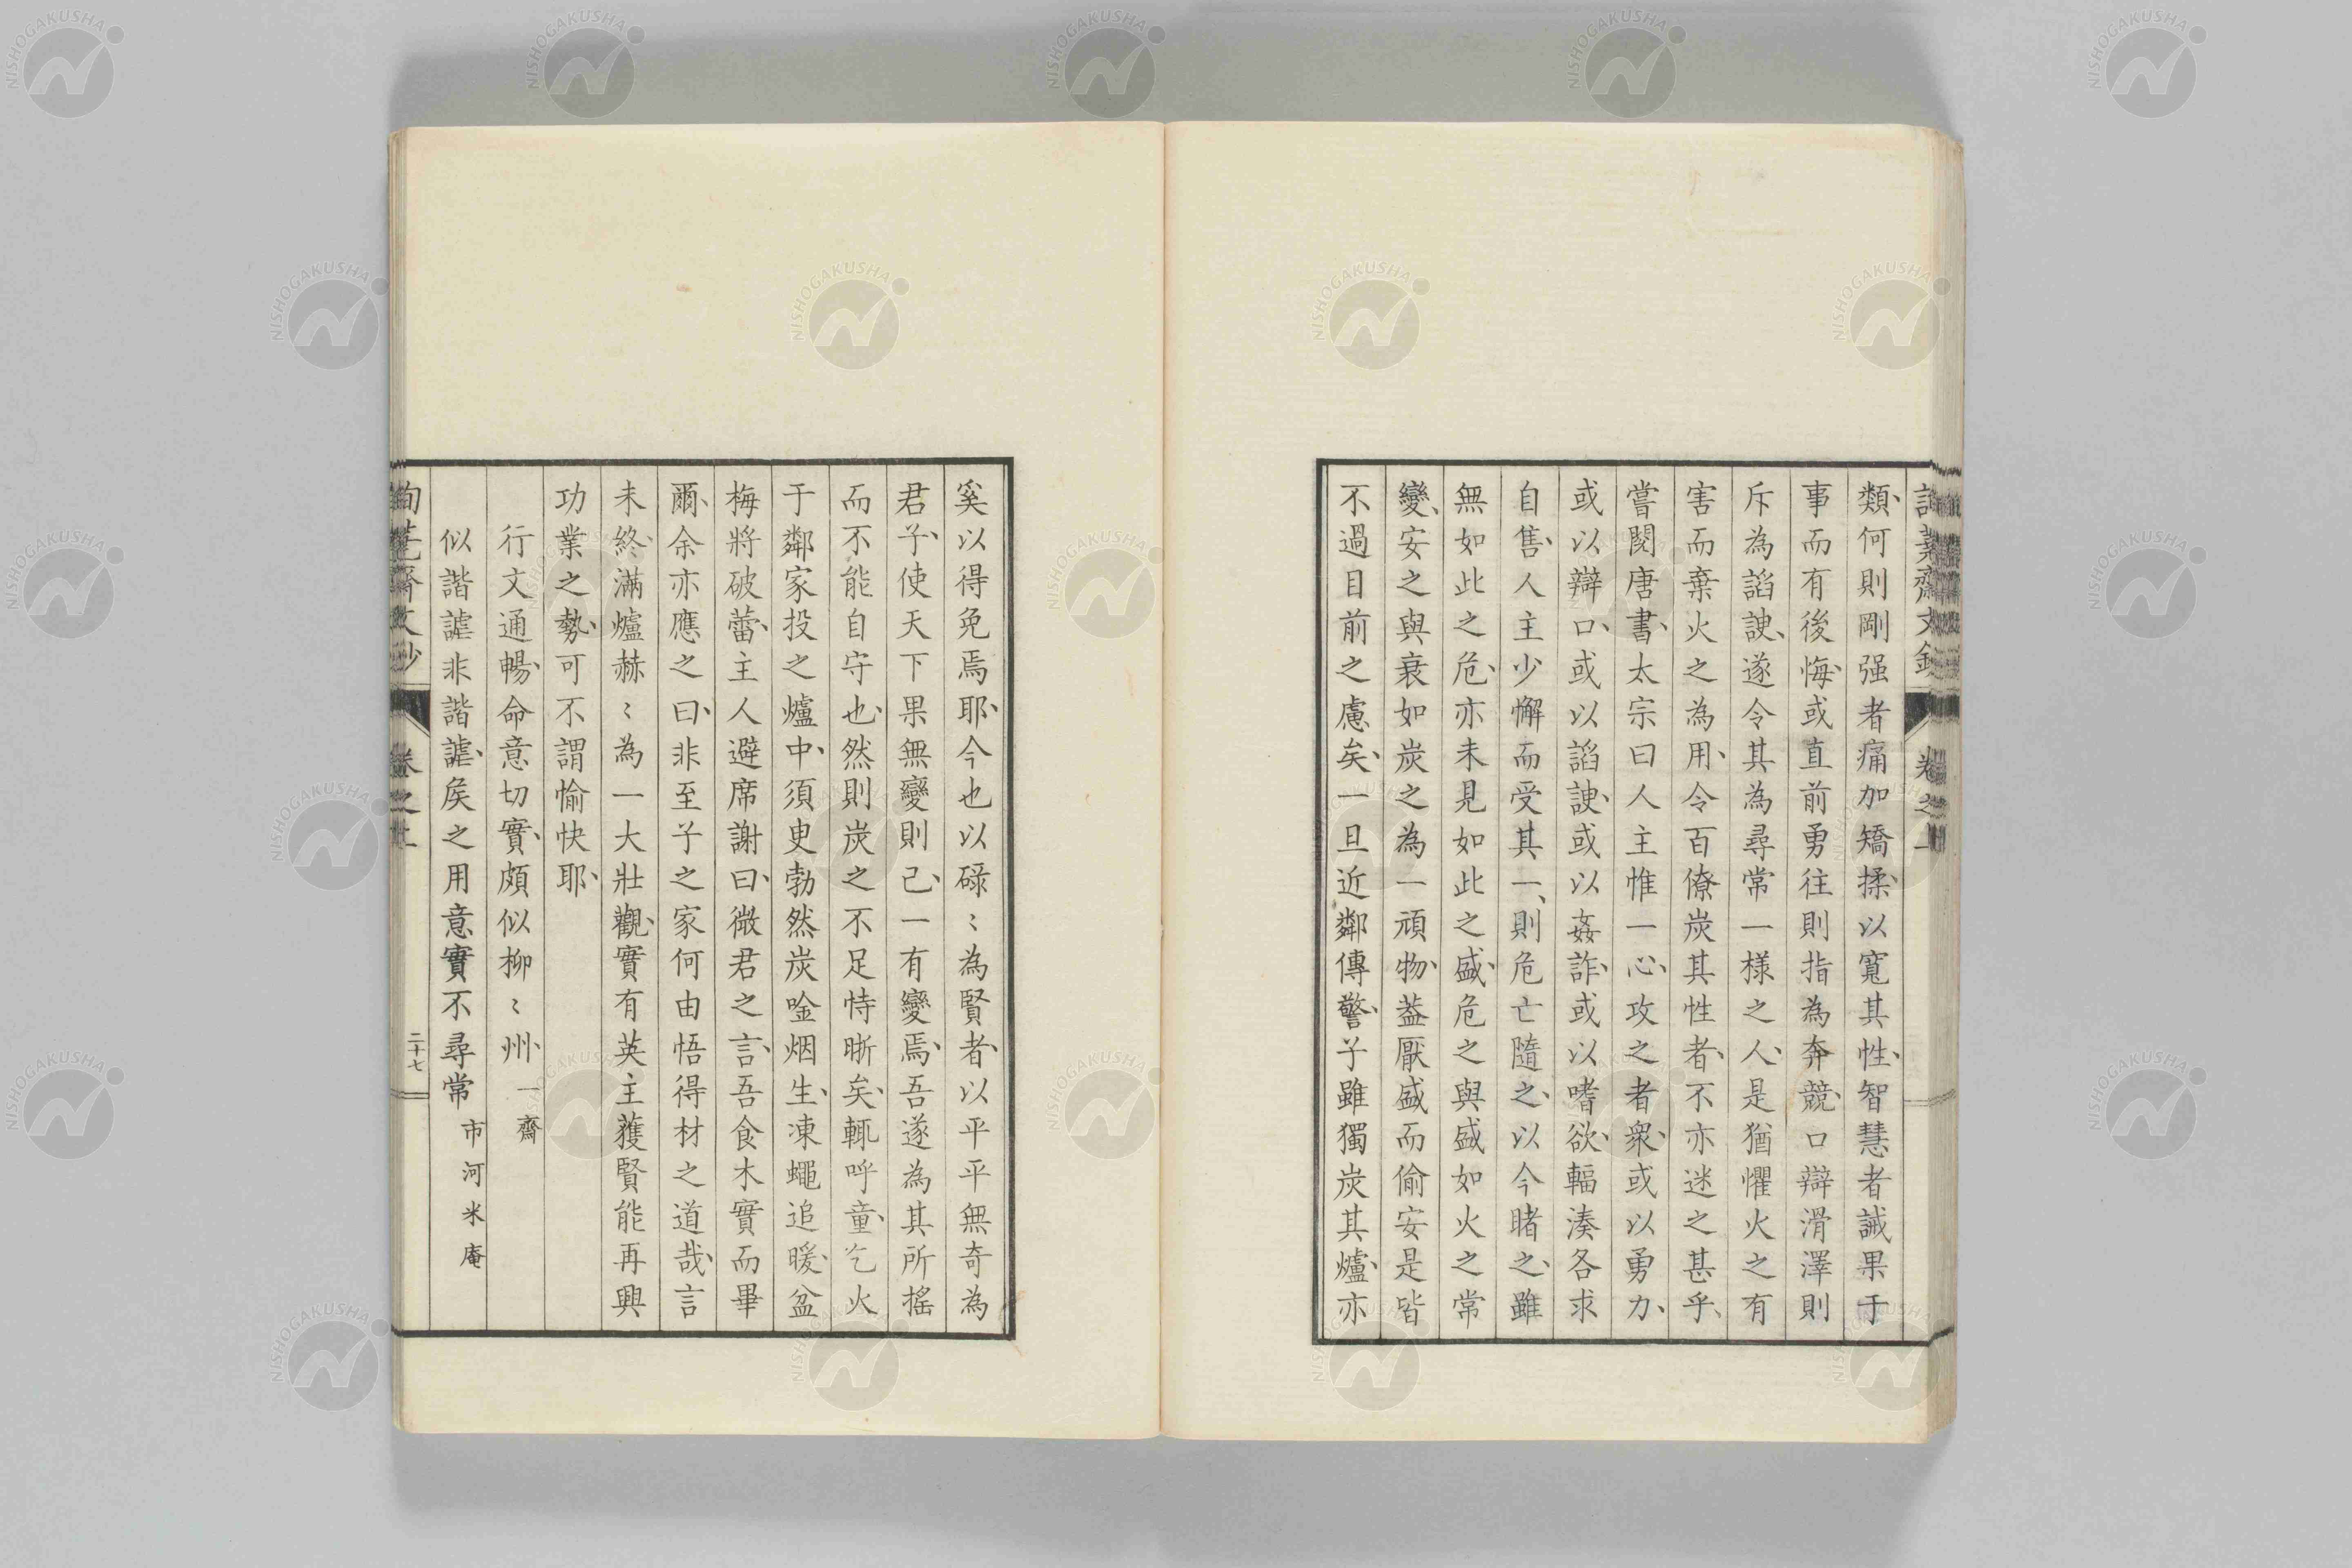 類、何則剛强者痛加矯揉、以寬其性、智慧者誡果于
事而有後悔、或直前勇往則指為奔競、口辯滑澤則
斥為謟諛、遂令其為尋常一樣之人、是猶懼火之有
害而棄火之為用、令百僚炭其性者、不亦迷之甚乎、
嘗閱唐書、太宗曰人主惟一心、攻之者衆、或以勇力、
或以辯口、或以謟諛、或以姦詐、或以嗜欲、輻湊各求
自售、人主少懈而受其一、則危亡隨之、以今睹之、雖
無如此之危、亦未見如此之盛、危之與盛如火之常
變、安之與衰如炭之為一頑物、葢厭盛而偷安是皆
不過目前之慮矣、一旦近鄰傳警、子雖獨炭其爐、亦
奚以得免焉耶、今也以碌〻為賢者、以平平無奇為
君子、使天下果無變則已、一有變焉、吾遂為其所搖
而不能自守也、然則炭之不足恃晣矣、輒呼童、乞火
于鄰家投之爐中、須臾勃然炭唫烟生、凍蠅追暖、盆
梅將破蕾、主人避席謝曰、微君之言、吾食木實而畢
爾、余亦應之曰、非至子之家何由悟得材之道哉、言
未終、滿爐赫〻為一大壯觀、實有英主獲賢能再興
功業之勢、可不謂愉快耶、
行文通暢、命意切實、頗似柳〻州、 一齋
似諧謔非諧謔、矦之用意實不尋常 市河米庵
卷之上
二十七